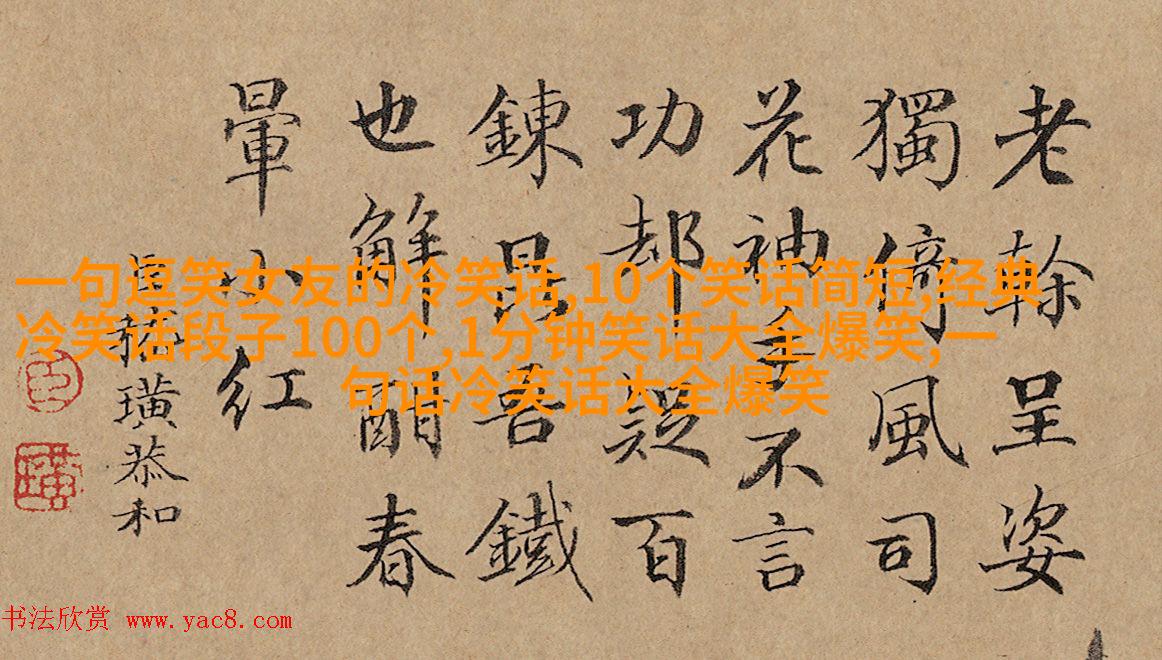 老幹呈姿
獨倚風司
花神手不言
功却疑百
錬昆吾鐵
也解酣春
暈小紅
臣嵇璜恭和
臣
璜
一句逗笑女友的冷笑话,10个笑话简短,经典
冷笑话段子100个,1分钟笑话大全爆笑,一
句话冷笑话大全爆笑
书法欣赏 www.yac8.com